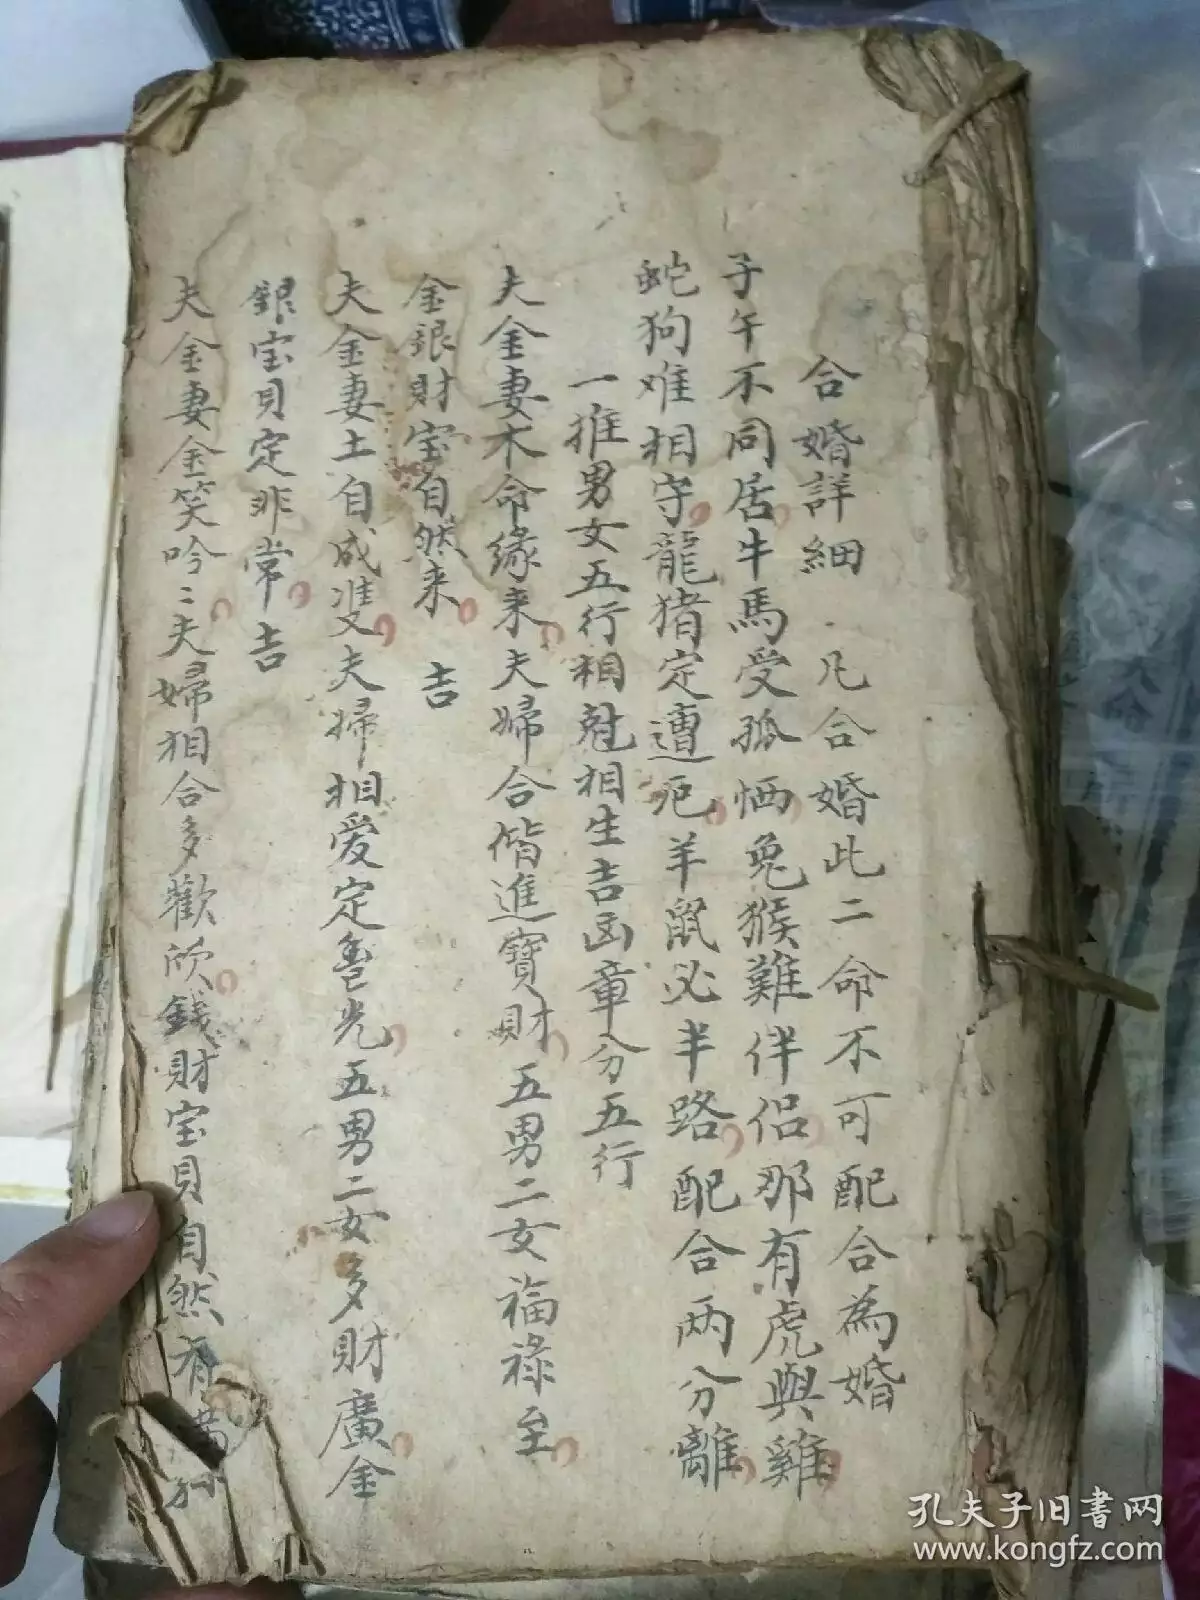 合婚詳細 凡合婚此二命不可配合為婚
子午不同居牛馬受孤恓兔猴難伴侶那有虎與雞
蛇狗难相守龍猪定遭厄羊鼠必半路配合两分離
一推男女五行相尅相生吉凶章分五行
夫金妻木命缘来夫婦合偕進寶財五男二女福祿至
金銀財宝自然来 吉
夫金妻土自成双夫婦相爱定光五男二女多財廣金
銀宝貝定非常吉
夫金妻金笑吟〻夫婦相合多歡欣錢財宝貝自然有
孔夫子旧书网
www.kongfz.com